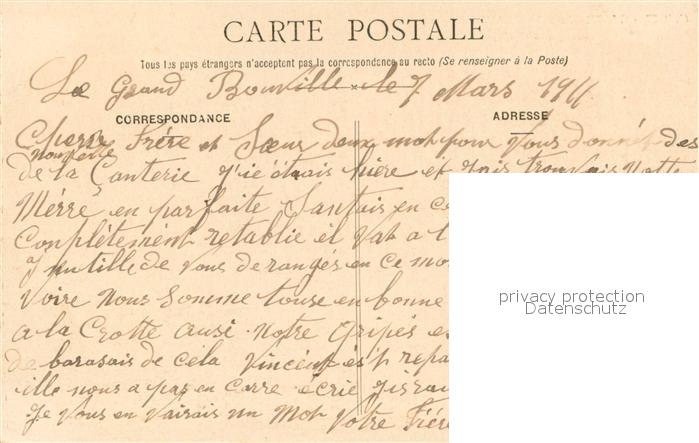 CARTE POSTALE
Tous les pays étrangers n'acceptent pas la correspondance au recto (Se renseigner à la Poste)
Le Grand Bouville le 7 Mars 1911
CORRESPONDANCE
ADRESSE
Chers Frére et Soeur deux mot pour Vous donnét des
nouvelle
de la Canterie J'ié étais hière et trouvais Notre
Mérré en parfaite Santais en ce
Conplétement retablie et Vat a l
Inutille de Vous derangés en ce mo
Voire Nous Somme touse en bonne
a la Crotte ausi Notre Gripés es
de barasais de cela Vincent est repa
ille nous a pas en corre écrie
Je Vous en Vairais un Mot Votre Frére
privacy protection
Datenschutz